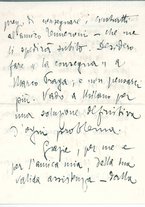 prego di consegnare i contratti
all'amico Veneroni - che me
li spedirà subito. Desidero
fare "la consegna" a
Marco Praga, e non pensarci
più. Vado a Milano per
una soluzione definitiva
d'ogni problema.
Grazie, per me e
per l'amica mia, della tua
valida assistenza - dalla